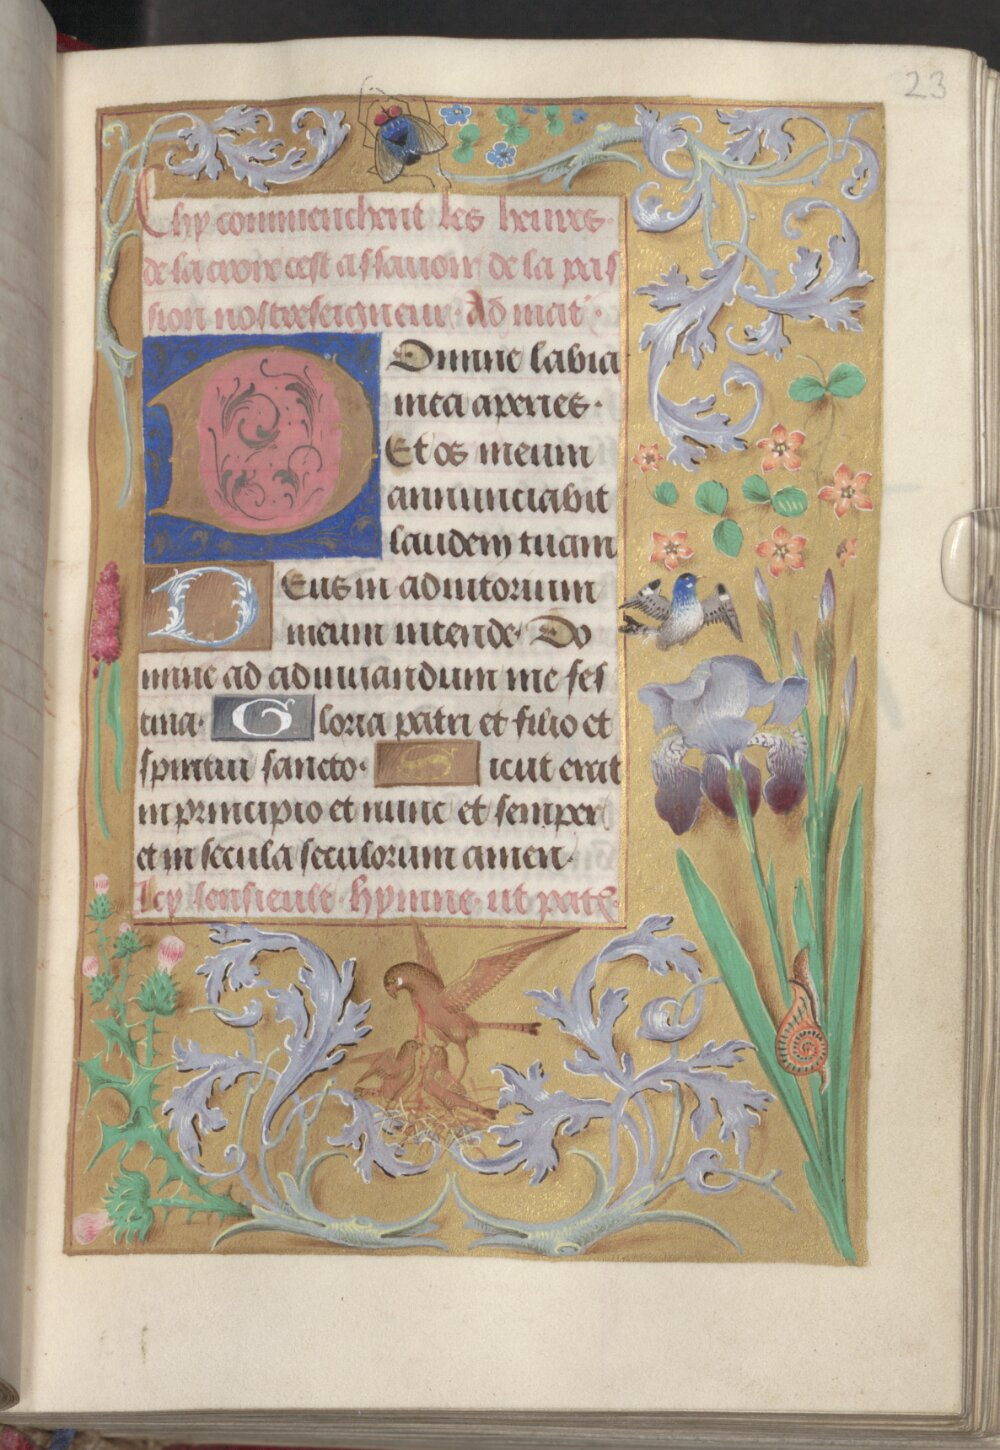 23
Chy commenchent les heures.
de la croix cest assavoir de la pas
sion nostre seigneur. Ad mat.
Domine labia
mea aperies.
Et os meum
annunciabit
laudem tuam
Deus in adiutorium
meum intende. Do
mine ad adiuuandum me fes
tina. Gloria patri et filio et
spiritui sancto. Sicut erat
in principio et nunc et semper
et in secula seculorum amen.
Icy sensieult hymne. ut pate